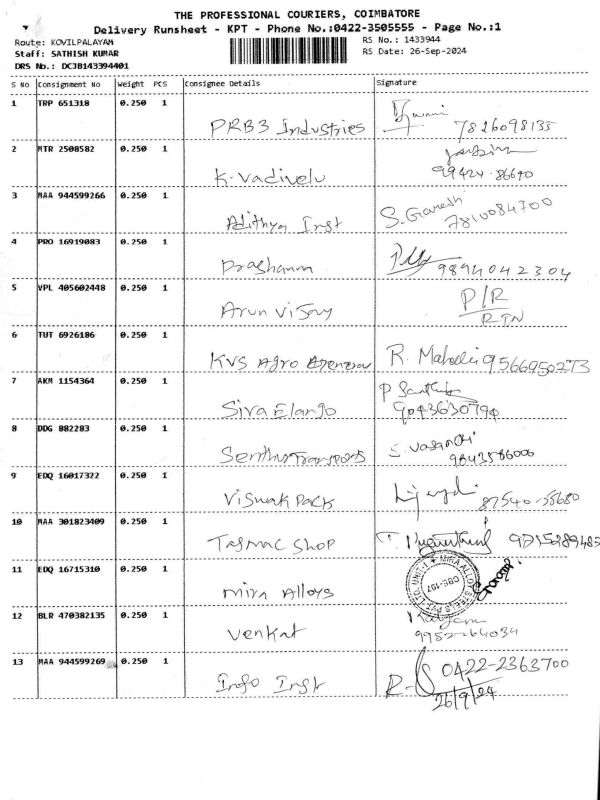 THE PROFESSIONAL COURIERS, COIMBATORE
Delivery Runsheet - KPT - Phone No.:0422-3505555 - Page No.:1
Route: KOVILPALAYAM
RS No.: 1433944
Staff: SATHISH KUMAR
RS Date: 26-Sep-2024
DRS No.: DCJB143394401
S No Consignment No Weight PCS Consignee Details Signature
1 TRP 651318 0.250 1
PRB3 Industries 7826098135
2 MTR 2508582 0.250 1
K. Vadivelu 99424-86690
3 MAA 944599266 0.250 1 S. Ganesh
Adithya Inst 7810084700
4 PRO 16919083 0.250 1
Prashanna 9894042304
5 VPL 405602448 0.250 1 P/R
Arun Vijay RTN
6 TUT 6926186 0.250 1
KVS Agro R. 9566950273
7 AKM 1154364 0.250 1 P
Siva Elango 9043630794
8 DDG 882283 0.250 1
Senthur Transports 9843586000
9 EDQ 16017322 0.250 1
Viswak Pack 87540-55680
10 MAA 301823409 0.250 1
TASMAC SHOP T. 9215289485
11 EDQ 16715310 0.250 1
Mira Alloys MIRA ALLOY STEELS PVT. LTD. UNIT CBE-197
12 BLR 470382135 0.250 1
Venkat 9952264034
13 MAA 944599269 0.250 1 0422-2363700
Info Inst R.
26/9/24